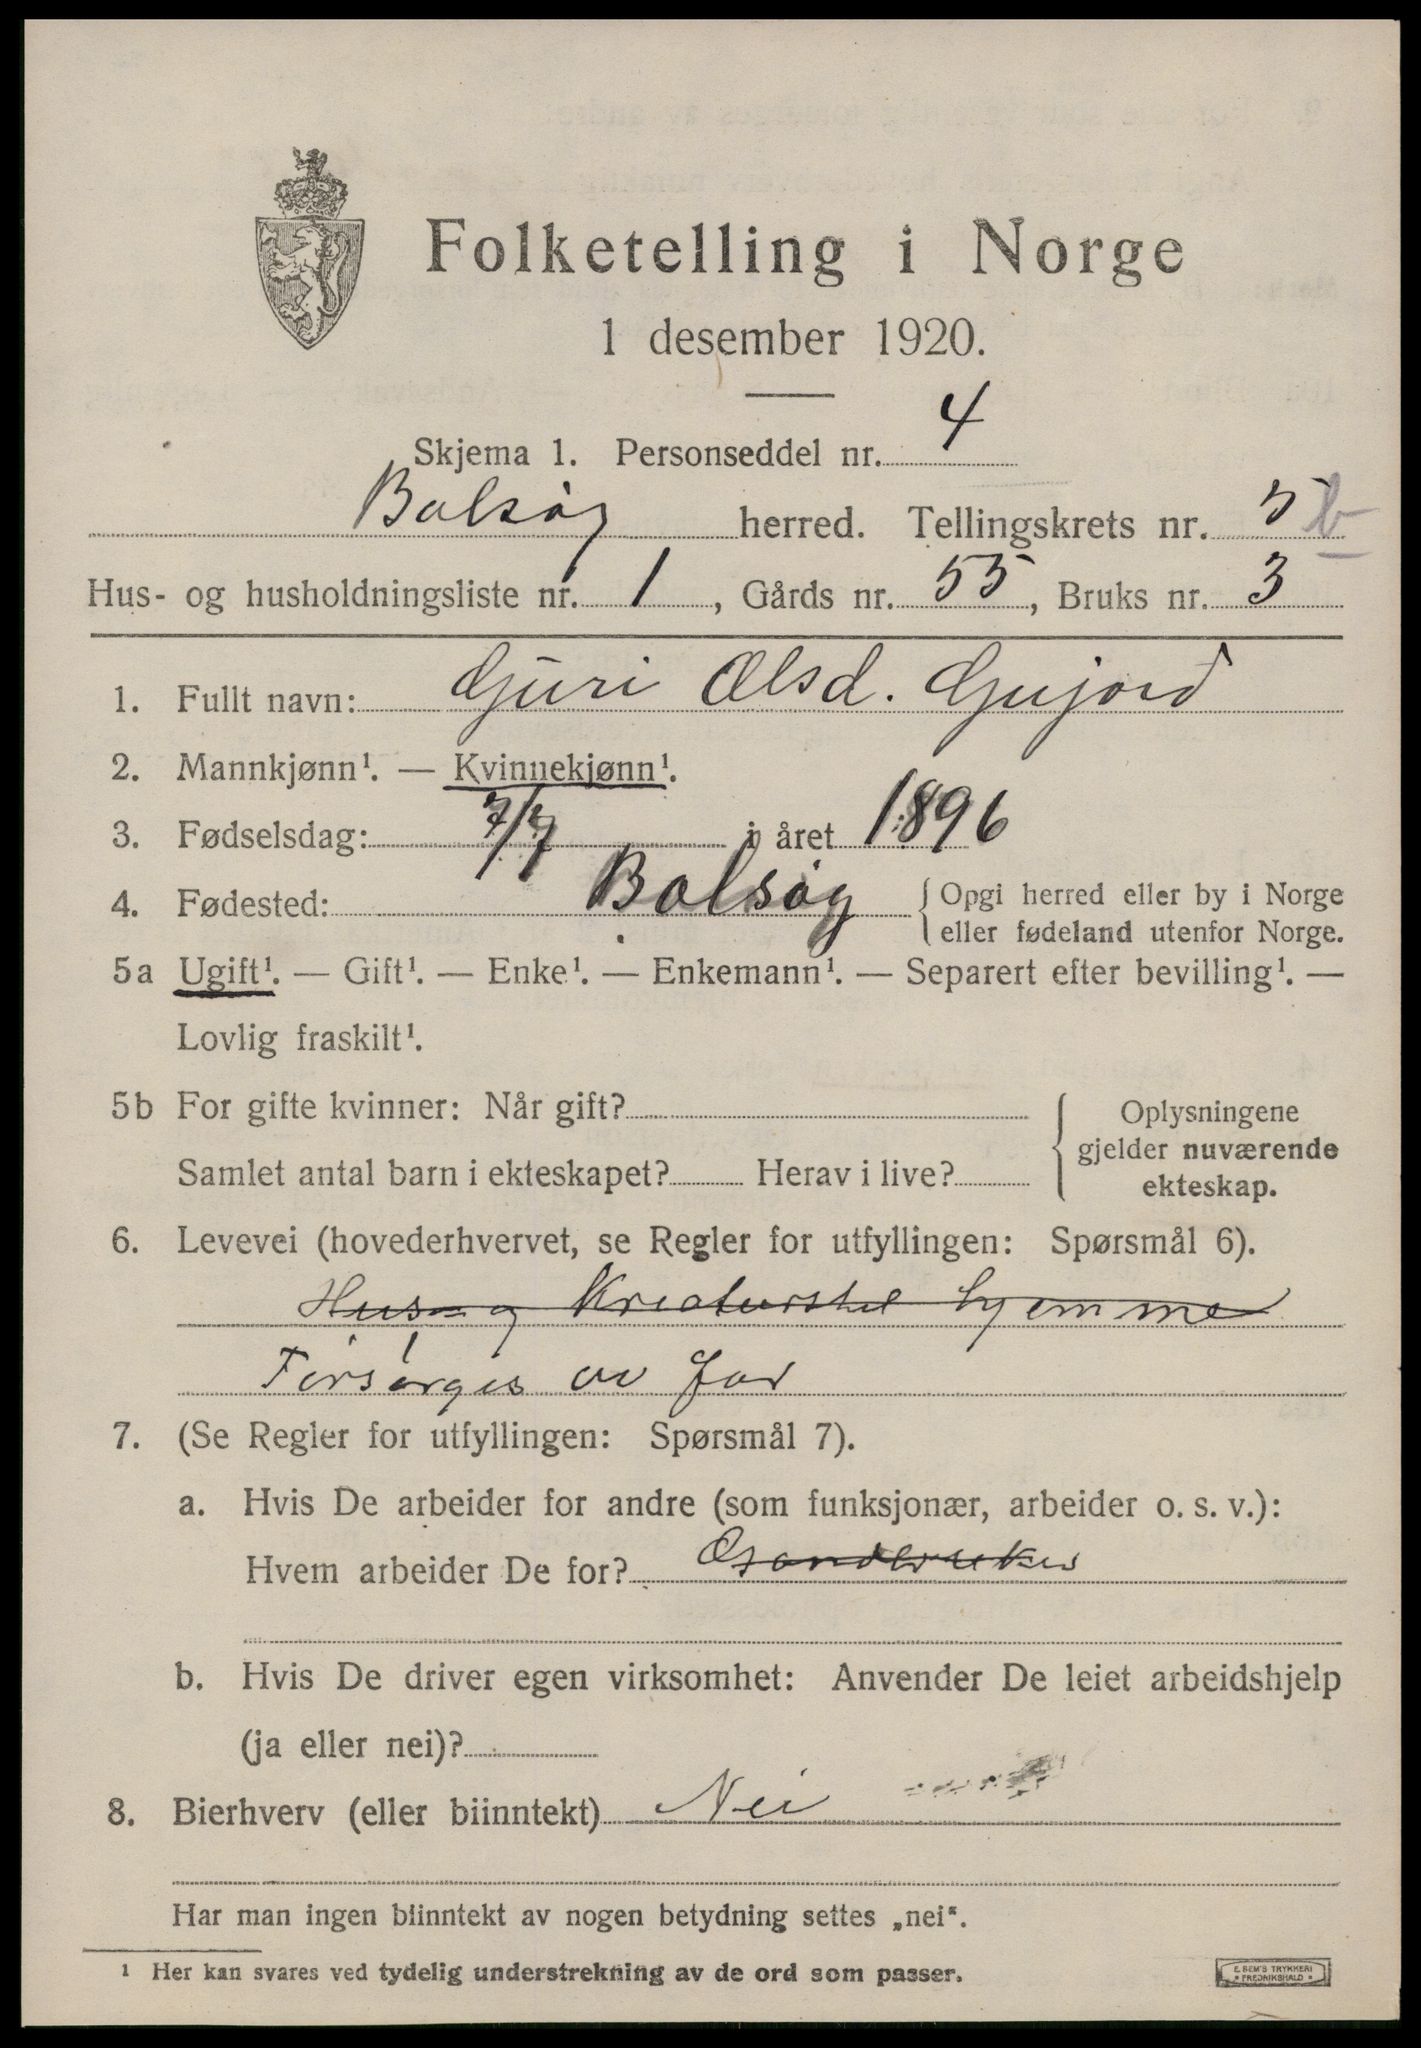 Folketelling i Norge
1 desember 1920.
Skjema 1. Personseddel nr. 4
Bolsøy herred. Tellingskrets nr. 5 b
Hus- og husholdningsliste nr. 1, Gårds nr. 55, Bruks nr. 3
1. Fullt navn: Guri Olsd. Gujord
2. Mannkjønn¹. — Kvinnekjønn¹.
3. Fødselsdag: 7/7 i året 1896
4. Fødested: Bolsøy { Opgi herred eller by i Norge
eller fødeland utenfor Norge.
5a Ugift¹. — Gift¹. — Enke¹. — Enkemann¹. — Separert efter bevilling¹. —
Lovlig fraskilt¹.
5b For gifte kvinner: Når gift?
Samlet antal barn i ekteskapet? Herav i live?
Oplysningene
gjelder nuværende
ekteskap.
6. Levevei (hovederhvervet, se Regler for utfyllingen: Spørsmål 6).
Hus- og Kreaturstel hjemme
Forsørges av far
7. (Se Regler for utfyllingen: Spørsmål 7).
a. Hvis De arbeider for andre (som funksjonær, arbeider o. s. v.):
Hvem arbeider De for? Gaardbruker
b. Hvis De driver egen virksomhet: Anvender De leiet arbeidshjelp
(ja eller nei)?
8. Bierhverv (eller biinntekt) Nei
Har man ingen biinntekt av nogen betydning settes „nei“.
¹ Her kan svares ved tydelig understrekning av de ord som passer.
E. SEM'S TRYKKERI
FREDRIKSHALD